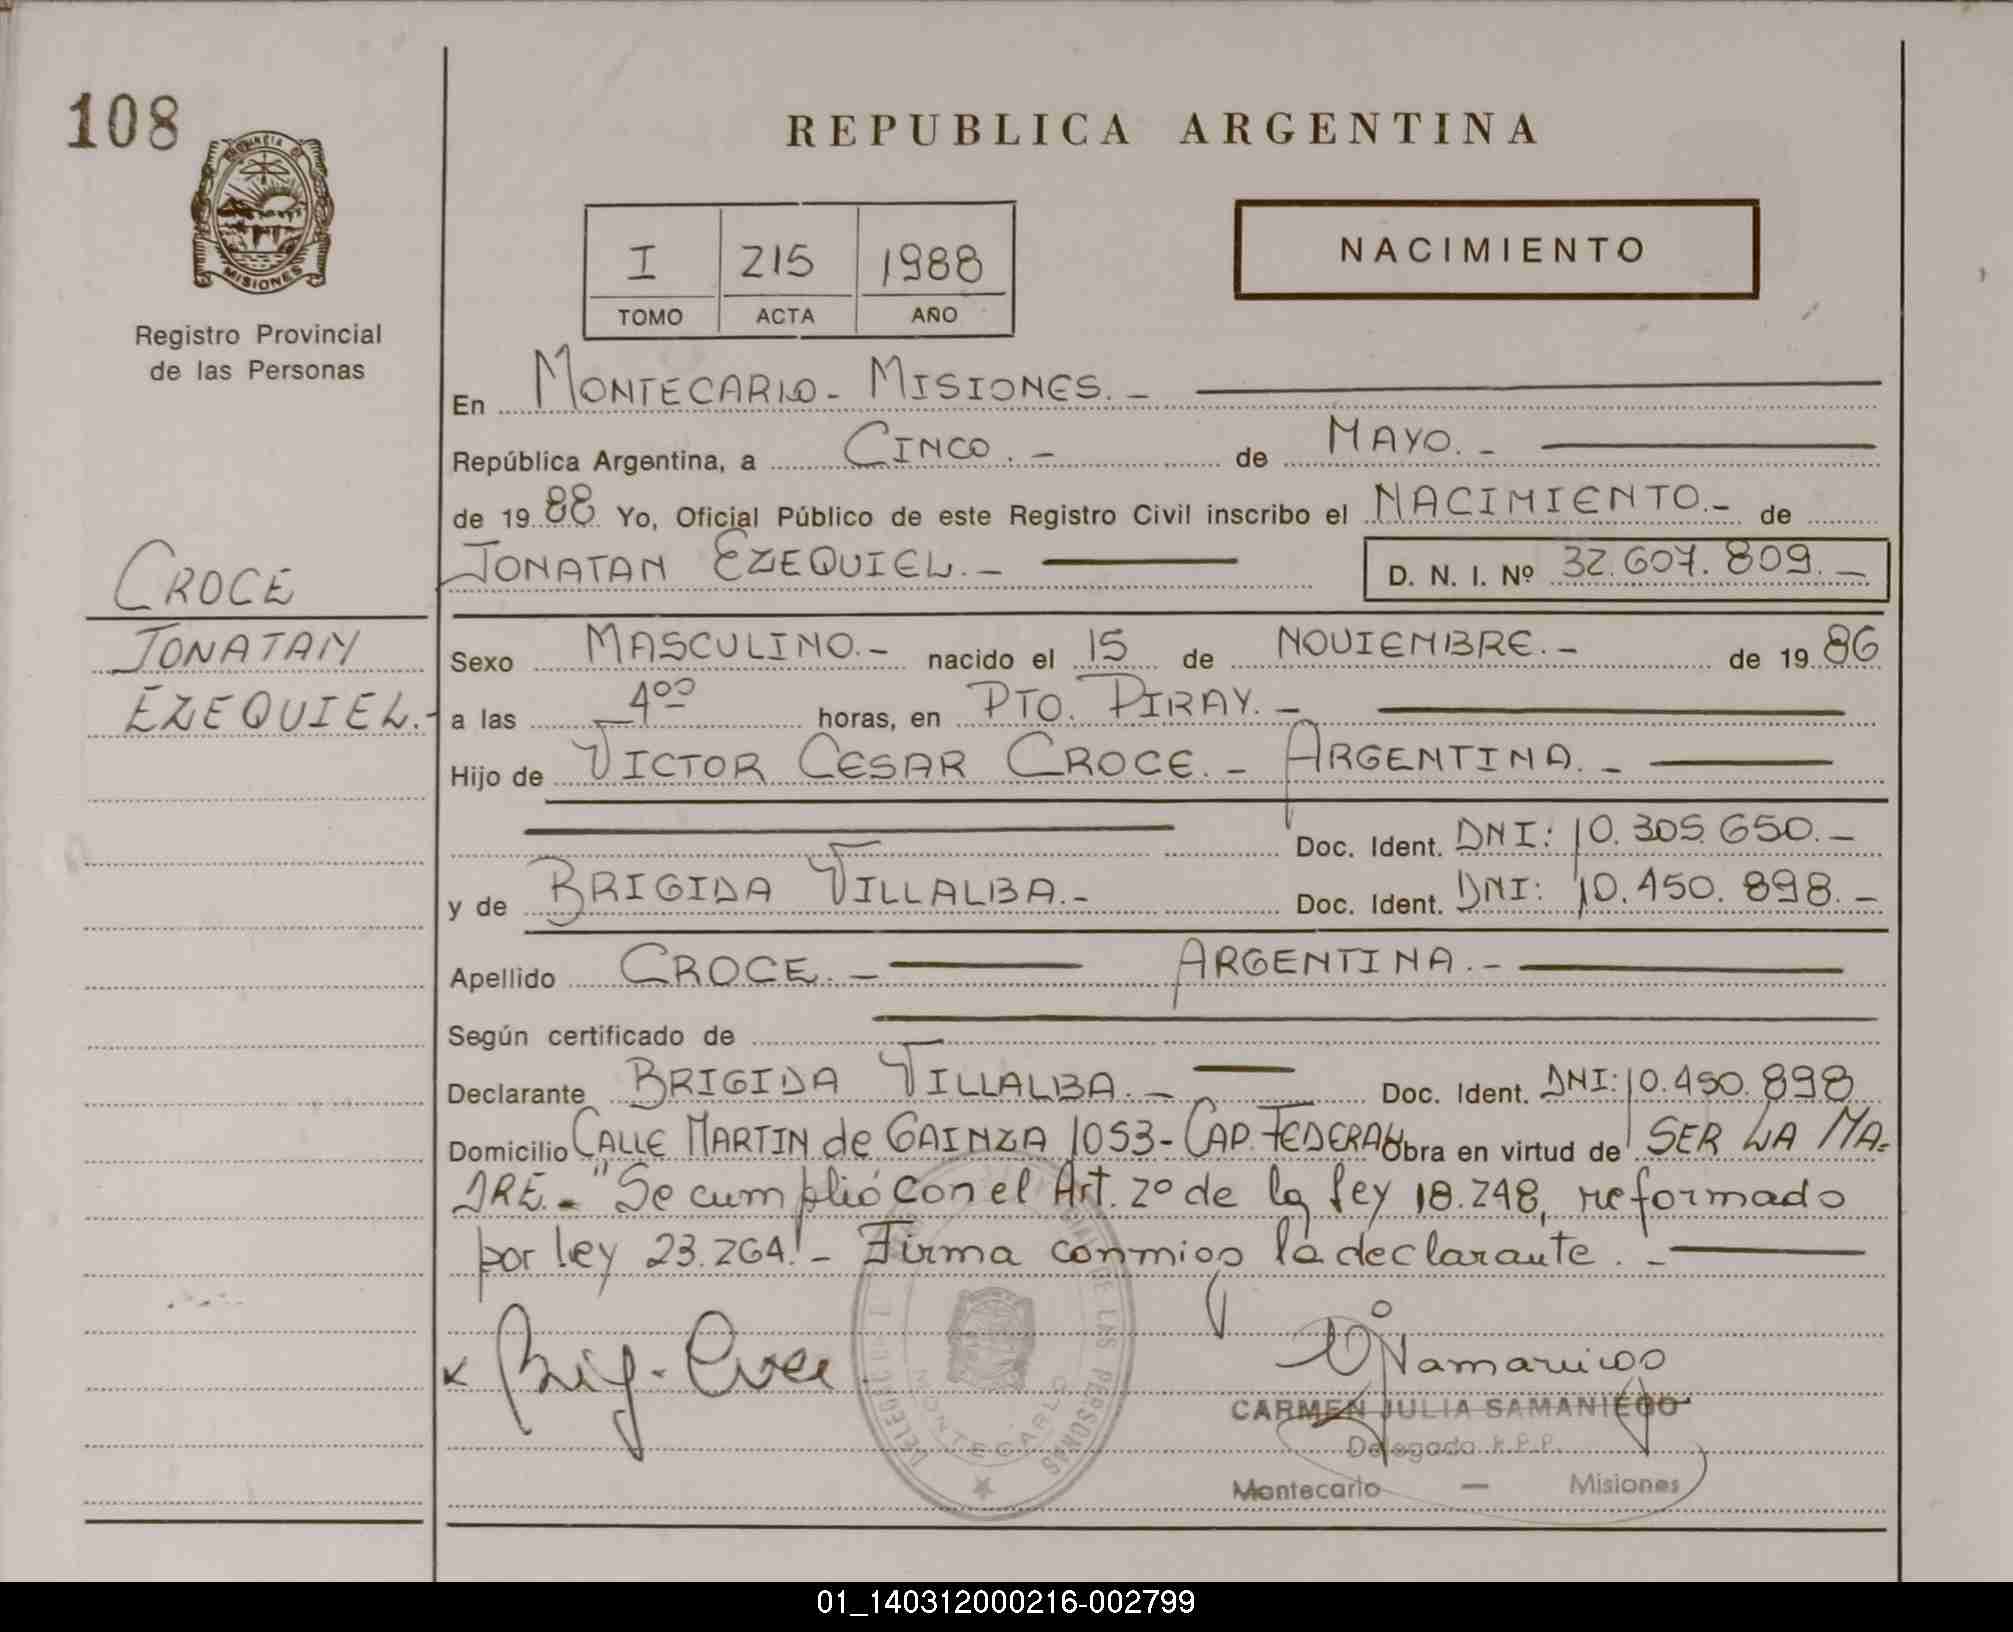 108
PROVINCIA DE
MISIONES
Registro Provincial
de las Personas
CROCE
JONATAN
EZEQUIEL.-
REPUBLICA ARGENTINA
I 215 1988
TOMO ACTA AÑO
NACIMIENTO
En MONTECARLO - MISIONES.-
República Argentina, a CINCO.- de MAYO.-
de 1988 Yo, Oficial Público de este Registro Civil inscribo el NACIMIENTO.- de
JONATAN EZEQUIEL.- D. N. I. Nº 32.607.809.-
Sexo MASCULINO.- nacido el 15 de NOVIEMBRE.- de 1986
a las 4ºº horas, en PTO. PIRAY.-
Hijo de VICTOR CESAR CROCE.- ARGENTINA.-
Doc. Ident. DNI: 10.305.650.-
y de BRIGIDA VILLALBA.- Doc. Ident. DNI: 10.450.898.-
Apellido CROCE.- ARGENTINA.-
Según certificado de
Declarante BRIGIDA VILLALBA.- Doc. Ident. DNI: 10.450.898
Domicilio CALLE MARTIN de GAINZA 1053 - CAP. FEDERAL Obra en virtud de SER LA MA-
DRE.- "Se cumplió con el Art. 2º de la ley 18.248, reformado
por ley 23.264".- Firma conmigo la declarante.-
DE LAS PERSONAS
MONTECARLO
CARMEN JULIA SAMANIEGO
Delegada R.P.P.
Montecarlo - Misiones
01_140312000216-002799